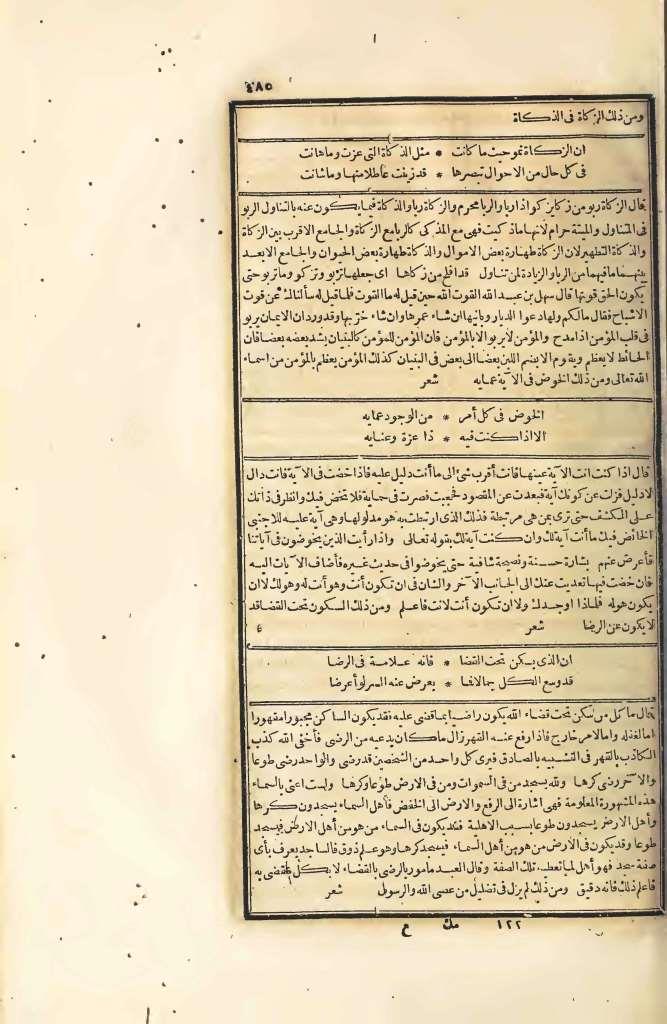 ٤٨٥
ومن ذلك الزكاة فى الذكاة
ان الزكاة نموحيث ما كانت * مثل الذكاة التى عزت وماهانت
فى كل حال من الاحوال تبصرها * قد زينت عاطلا منها وماشانت
يقال الزكاة ربو من زكا يزكو اذا ربا والربا محرم والزكاة ربا والذكاة فيما يكون عنه بالتناول الربو
فى المتناول والميتة حرام لانها ماذكيت فهى مع المذكى كالربا مع الزكاة والجامع الاقرب بين الزكاة
والذكاة التطهير لان الزكاة طهارة بعض الاموال والذكاة طهارة بعض الحيوان والجامع الابعد
بينهما ما فيهما من الربا والزيادة لمن تناول قد افلح من زكاها اى جعلها تربو وتزكو وماتربو حتى
يكون الحق قوتها قال سهل بن عبد الله القوت الله حين قيل له ما القوت فلما قيل له سألناك عن قوت
الاشباح فقال مالكم ولها دعوا الديار وبانيها ان شاء عمرها وان شاء خربها وقد ورد ان الايمان يربو
فى قلب المؤمن اذا مدح والمؤمن لا يربو الا بالمؤمن فان المؤمن للمؤمن كالبنيان يشد بعضه بعضا فان
الحائط لا يعظم ويقوم الا بضم اللبن بعضا الى بعض فى البنيان كذلك المؤمن يعظم بالمؤمن من اسماء
الله تعالى ومن ذلك الخوض فى الآية عمايه شعر
الخوض فى كل أمر * من الوجود عمايه
الا اذا كنت فيه * ذا عزة وعنايه
قال اذا كنت انت الآية عينها فانت أقرب شئ الى ما أنت دليل عليه فاذا خضت فى الآية فانت دال
لا دليل فزلت عن كونك آية فبعدت عن المقصود فحجبت فصرت فى عماية فلا تخض فيك وانظر فى ذاتك
على الكشف حتى ترى بمن هى مرتبطة فذلك الذى ارتبطت به هو مدلولها وهى آية عليه للاجنبى
الخائض فيك ما أنت آية لك وان كنت آية لك بقوله تعالى واذا رأيت الذين يخوضون فى آياتنا
فأعرض عنهم بشارة حسنة ونصيحة شافية حتى يخوضوا فى حديث غيره فأضاف الآيات اليه
فان خضت فيها تعديت عنك الى الجانب الآخر والشان فى ان تكون أنت وهو أنت له وهو لك لا ان
يكون هو له فلماذا اوجدك ولا ان تكون أنت لانت فاعلم ومن ذلك السكون تحت القضا قد
لا يكون عن الرضا شعر ٤
ان الذى يسكن تحت القضا * فانه علامة فى الرضا
قد وسع الكل * يعرض عنه السر لو أعرضا
يقال ما كل من سكن تحت قضاء الله يكون راضيا بما قضى عليه فقد يكون الساكن مجبورا مقهورا
اما لغفلة واما لامر خارج فاذا ارفع عنه القهر زال ما كان يدعيه من الرضى فأخفى الله كذب
الكاذب بالقهر فى التشبيه بالصادق فيرى كل واحد من الشخصين قد رضى والواحد رضى طوعا
والآخر رضى كرها ولله يسجد من فى السموات ومن فى الارض طوعا وكرها ولست اعنى بالسماء
هذه المشهورة المعلومة فهى اشارة الى الرفع والارض الى الخفض فأهل السماء يسجدون كرها
وأهل الارض يسجدون طوعا بسبب الاهلية فقد يكون فى السماء من هو من أهل الارض فيسجد
طوعا وقد يكون فى الارض من هو من أهل السماء فيسجد كرها وهو علم ذوق فالساجد يعرف بأى
صفة سجد فهو أهل لما تعطيه تلك الصفة وقال العبد مأمور بالرضى بالقضاء لا بكل مقضى به
فاعلم ذلك فانه دقيق ومن ذلك لم يزل فى تضليل من عصى الله والرسول شعر
١٢٢ مك ح